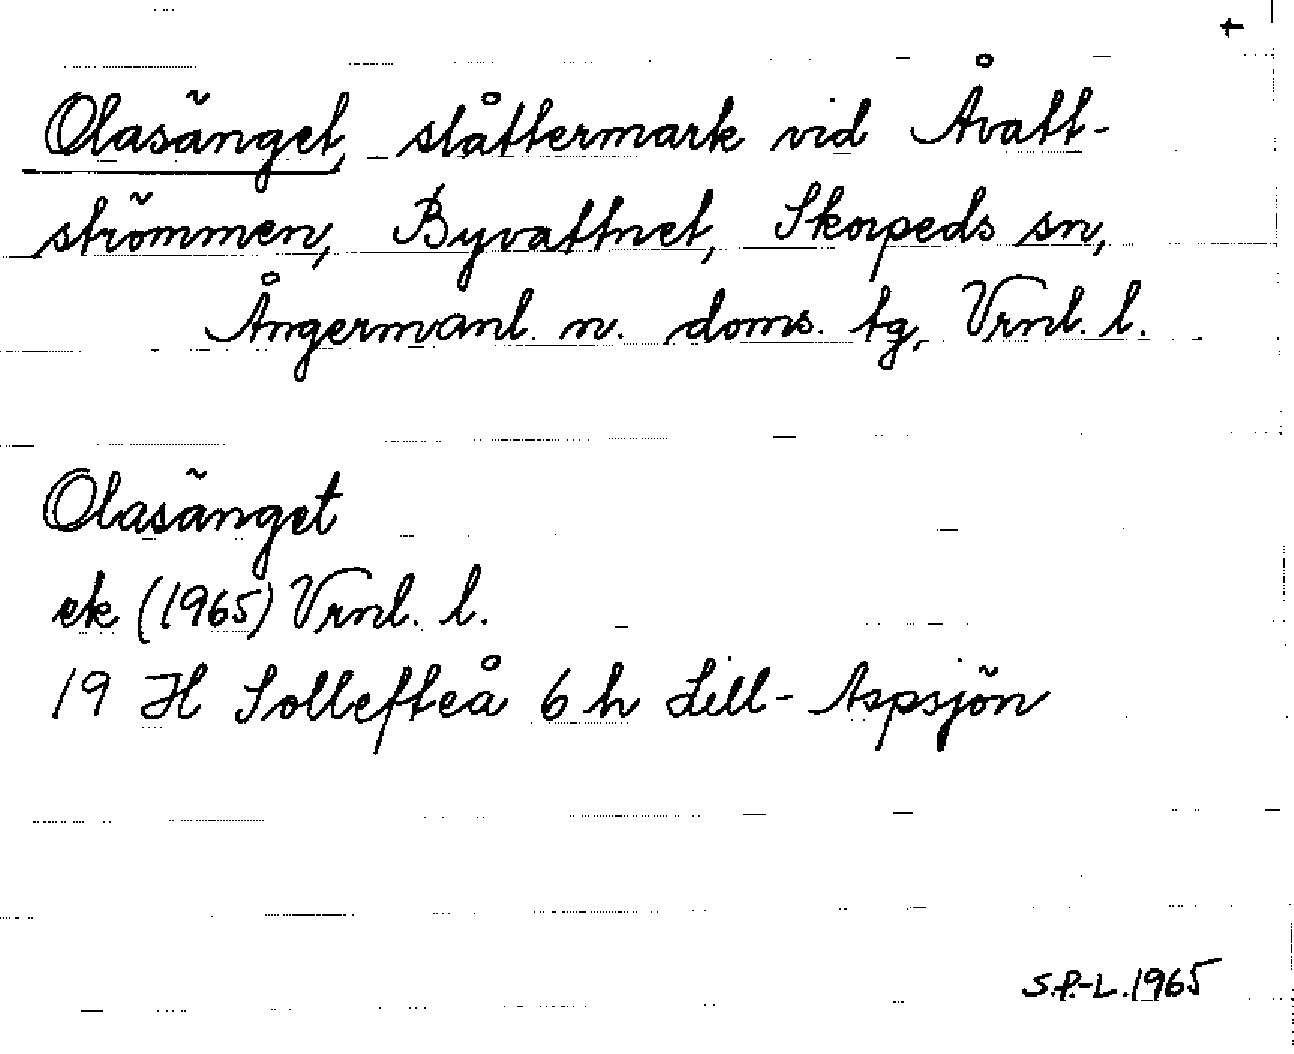 †
Olasänget, slåttermark vid Åvatt-
strömmen, Byvattnet, Skorpeds sn,
Ångermanl. n. doms. tg, Vrnl. l.
Olasänget
ek (1965) Vrnl. l.
19 H Sollefteå 6 h Lill-Aspsjön
S.P.-L. 1965